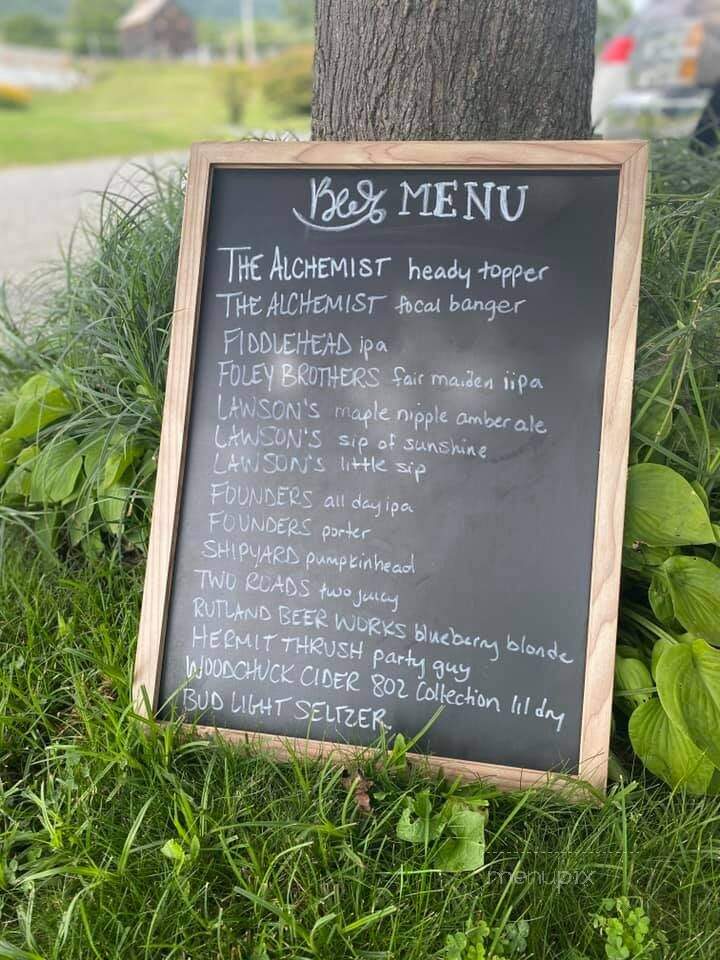 Beer MENU
THE ALCHEMIST heady topper
THE ALCHEMIST focal banger
FIDDLEHEAD ipa
FOLEY BROTHERS fair maiden iipa
LAWSON'S maple nipple amber ale
LAWSON'S sip of sunshine
LAWSON'S little sip
FOUNDERS all day ipa
FOUNDERS porter
SHIPYARD pumpkinhead
TWO ROADS two juicy
RUTLAND BEER WORKS blueberry blonde
HERMIT THRUSH party guy
WOODCHUCK CIDER 802 Collection lil dry
BUD LIGHT SELTZER
menupix